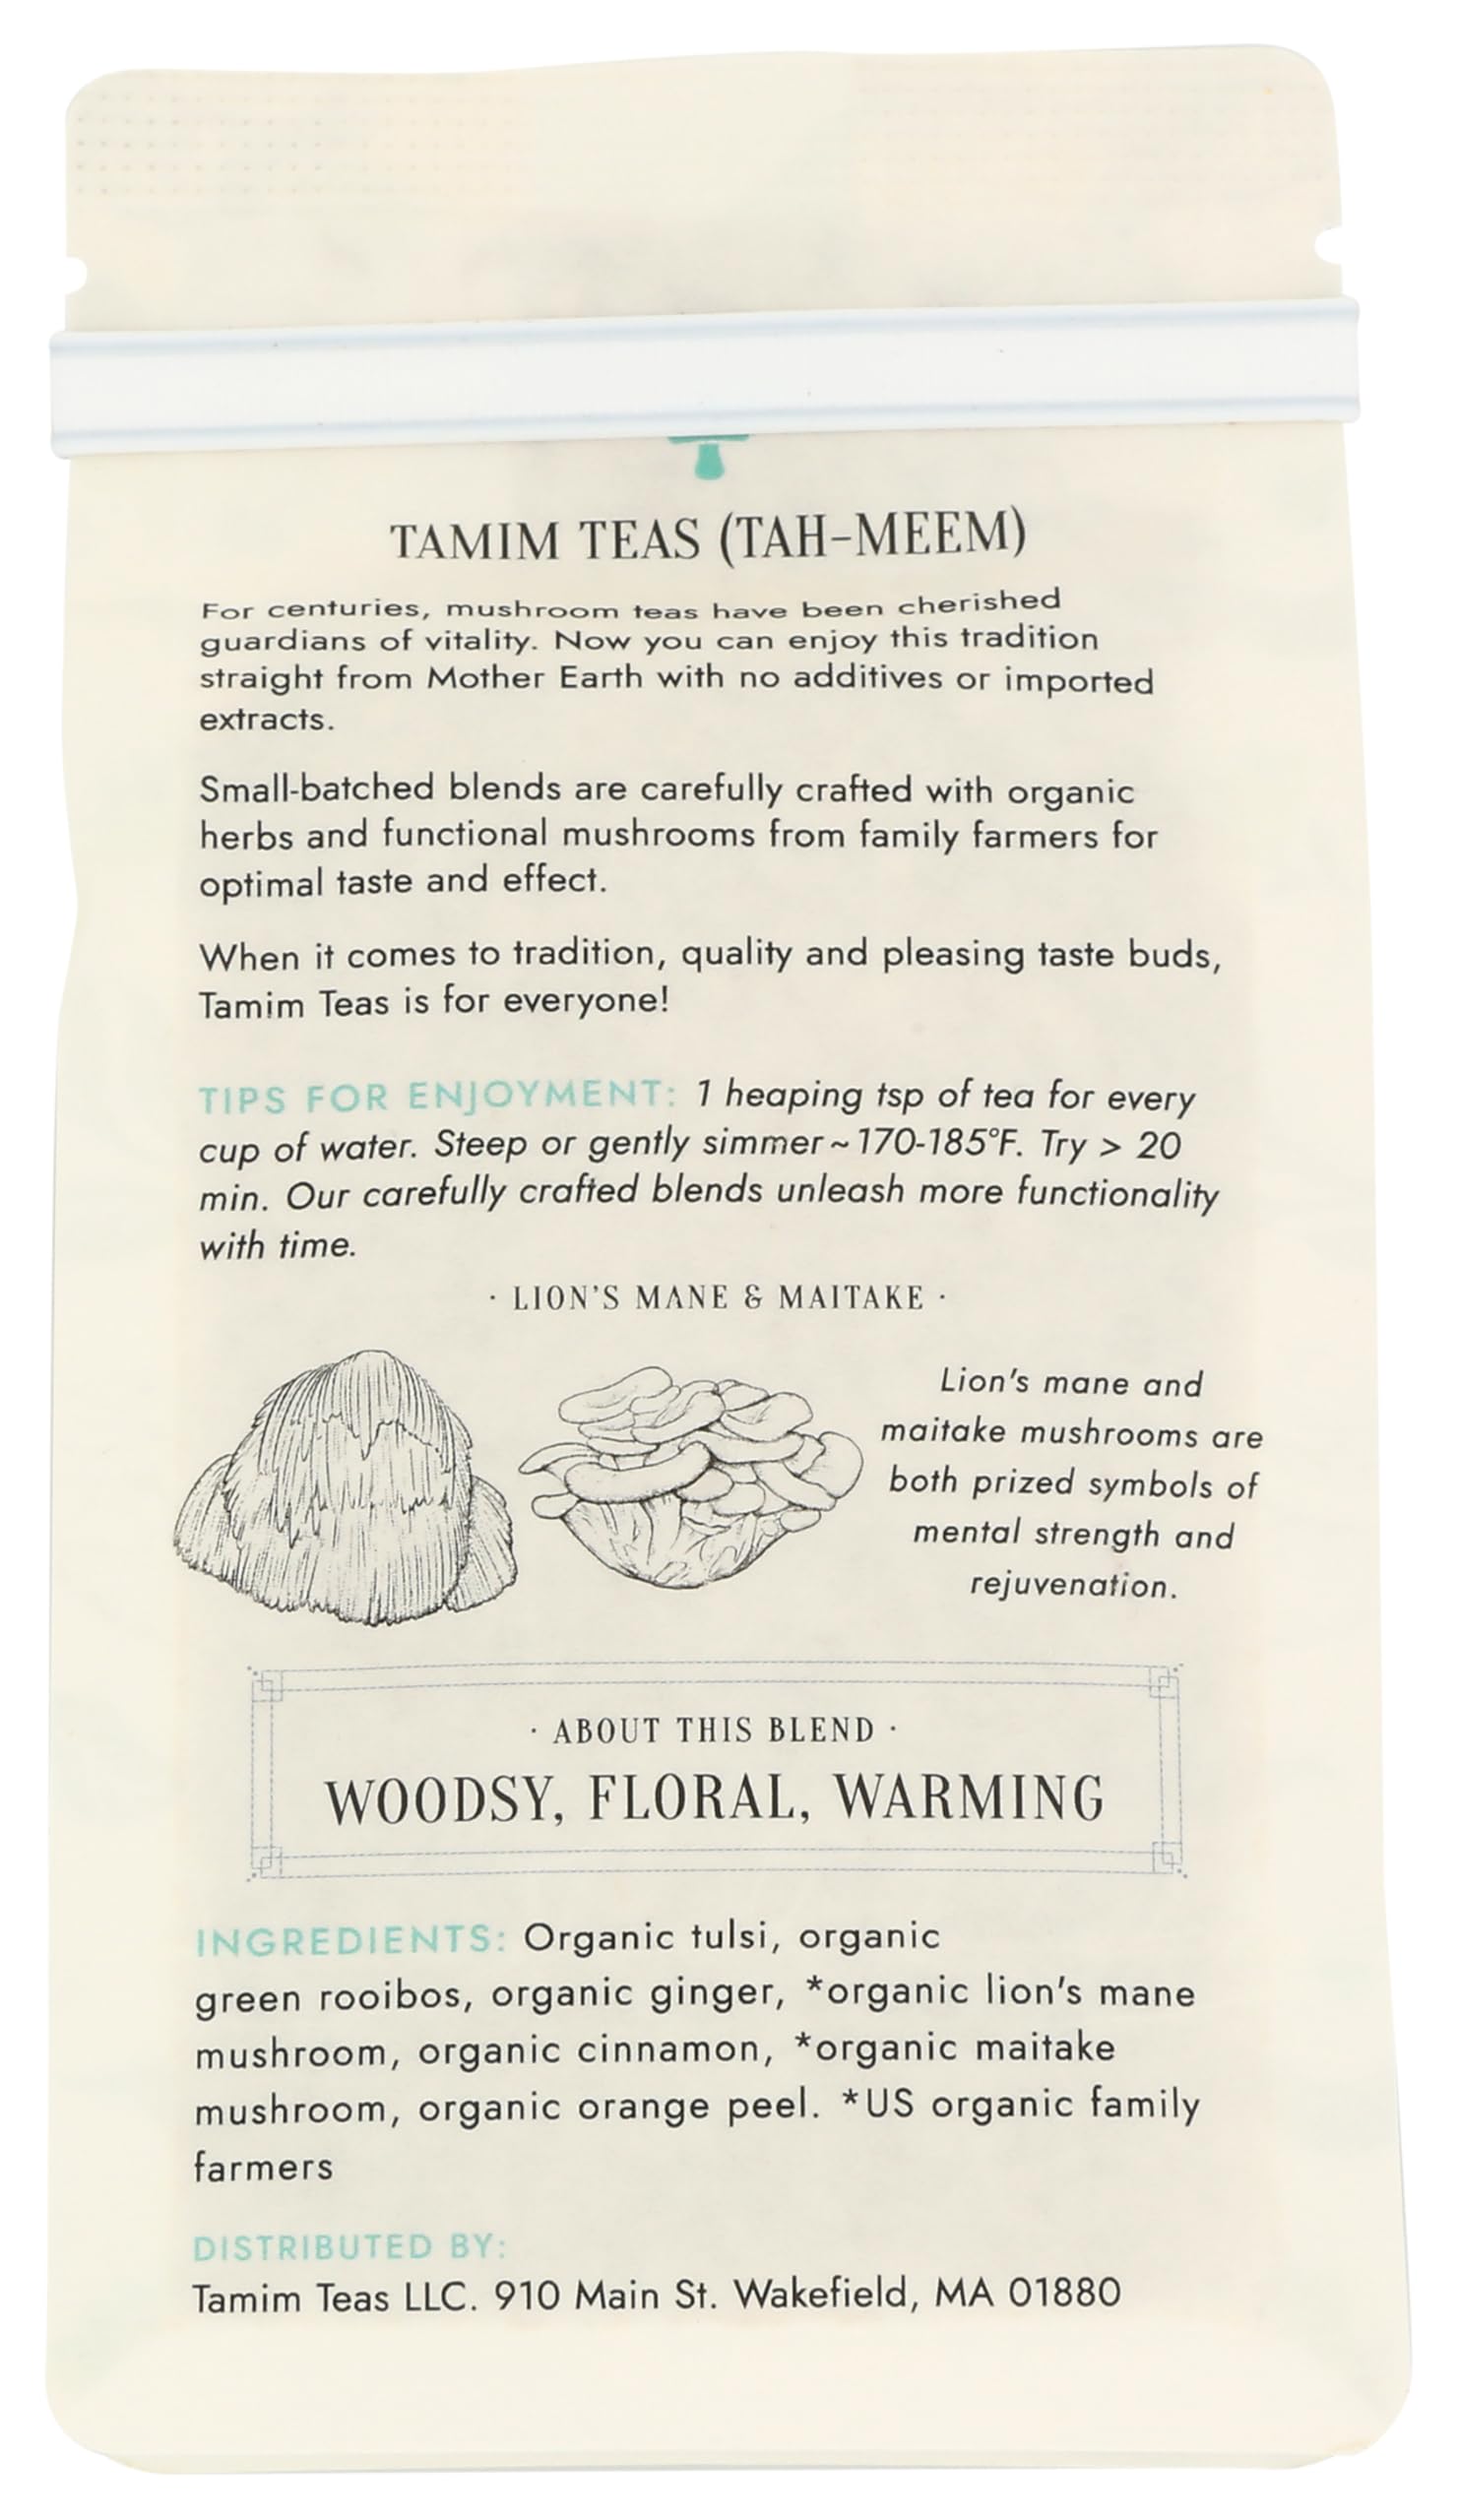 TAMIM TEAS (TAH-MEEM)
For centuries, mushroom teas have been cherished
guardians of vitality. Now you can enjoy this tradition
straight from Mother Earth with no additives or imported
extracts.
Small-batched blends are carefully crafted with organic
herbs and functional mushrooms from family farmers for
optimal taste and effect.
When it comes to tradition, quality and pleasing taste buds,
Tamim Teas is for everyone!
TIPS FOR ENJOYMENT: 1 heaping tsp of tea for every
cup of water. Steep or gently simmer ~ 170-185°F. Try > 20
min. Our carefully crafted blends unleash more functionality
with time.
· LION'S MANE & MAITAKE ·
Lion's mane and
maitake mushrooms are
both prized symbols of
mental strength and
rejuvenation.
· ABOUT THIS BLEND ·
WOODSY, FLORAL, WARMING
INGREDIENTS: Organic tulsi, organic
green rooibos, organic ginger, *organic lion's mane
mushroom, organic cinnamon, *organic maitake
mushroom, organic orange peel. *US organic family
farmers
DISTRIBUTED BY:
Tamim Teas LLC. 910 Main St. Wakefield, MA 01880